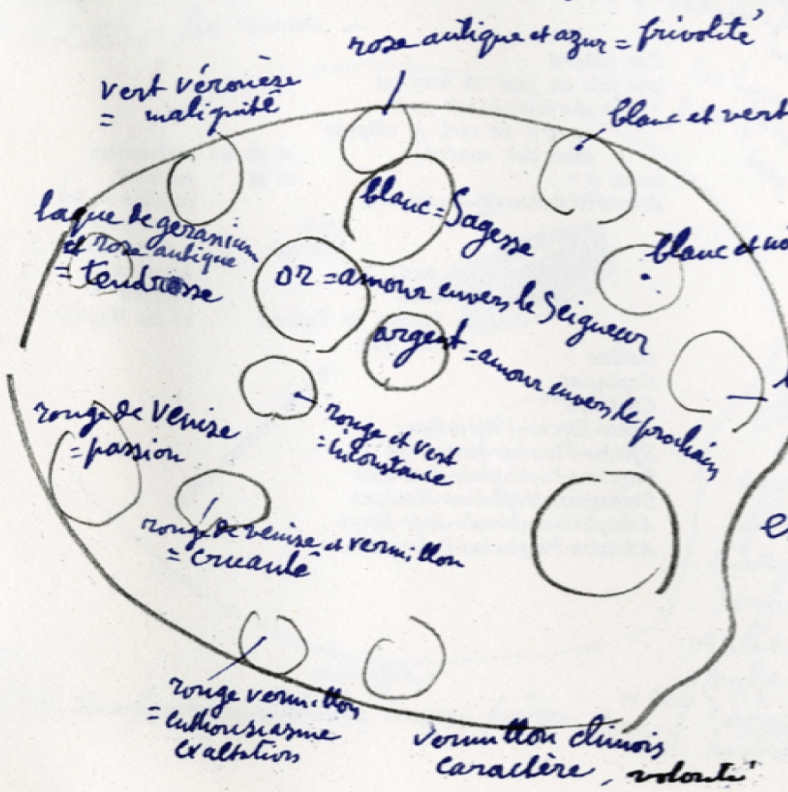 rose antique et azur = frivolité
vert véronèse
= malignité
blanc et vert
laque de geranium
et rose antique
= tendresse
blanc = Sagesse
blanc et
or = amour envers le Seigneur
argent = amour envers le prochain
rouge de venise
= passion
rouge et vert
= inconstance
rouge de venise et vermillon
= cruauté
rouge vermillon
= enthousiasme
exaltation
vermillon chinois
caractère, volonté